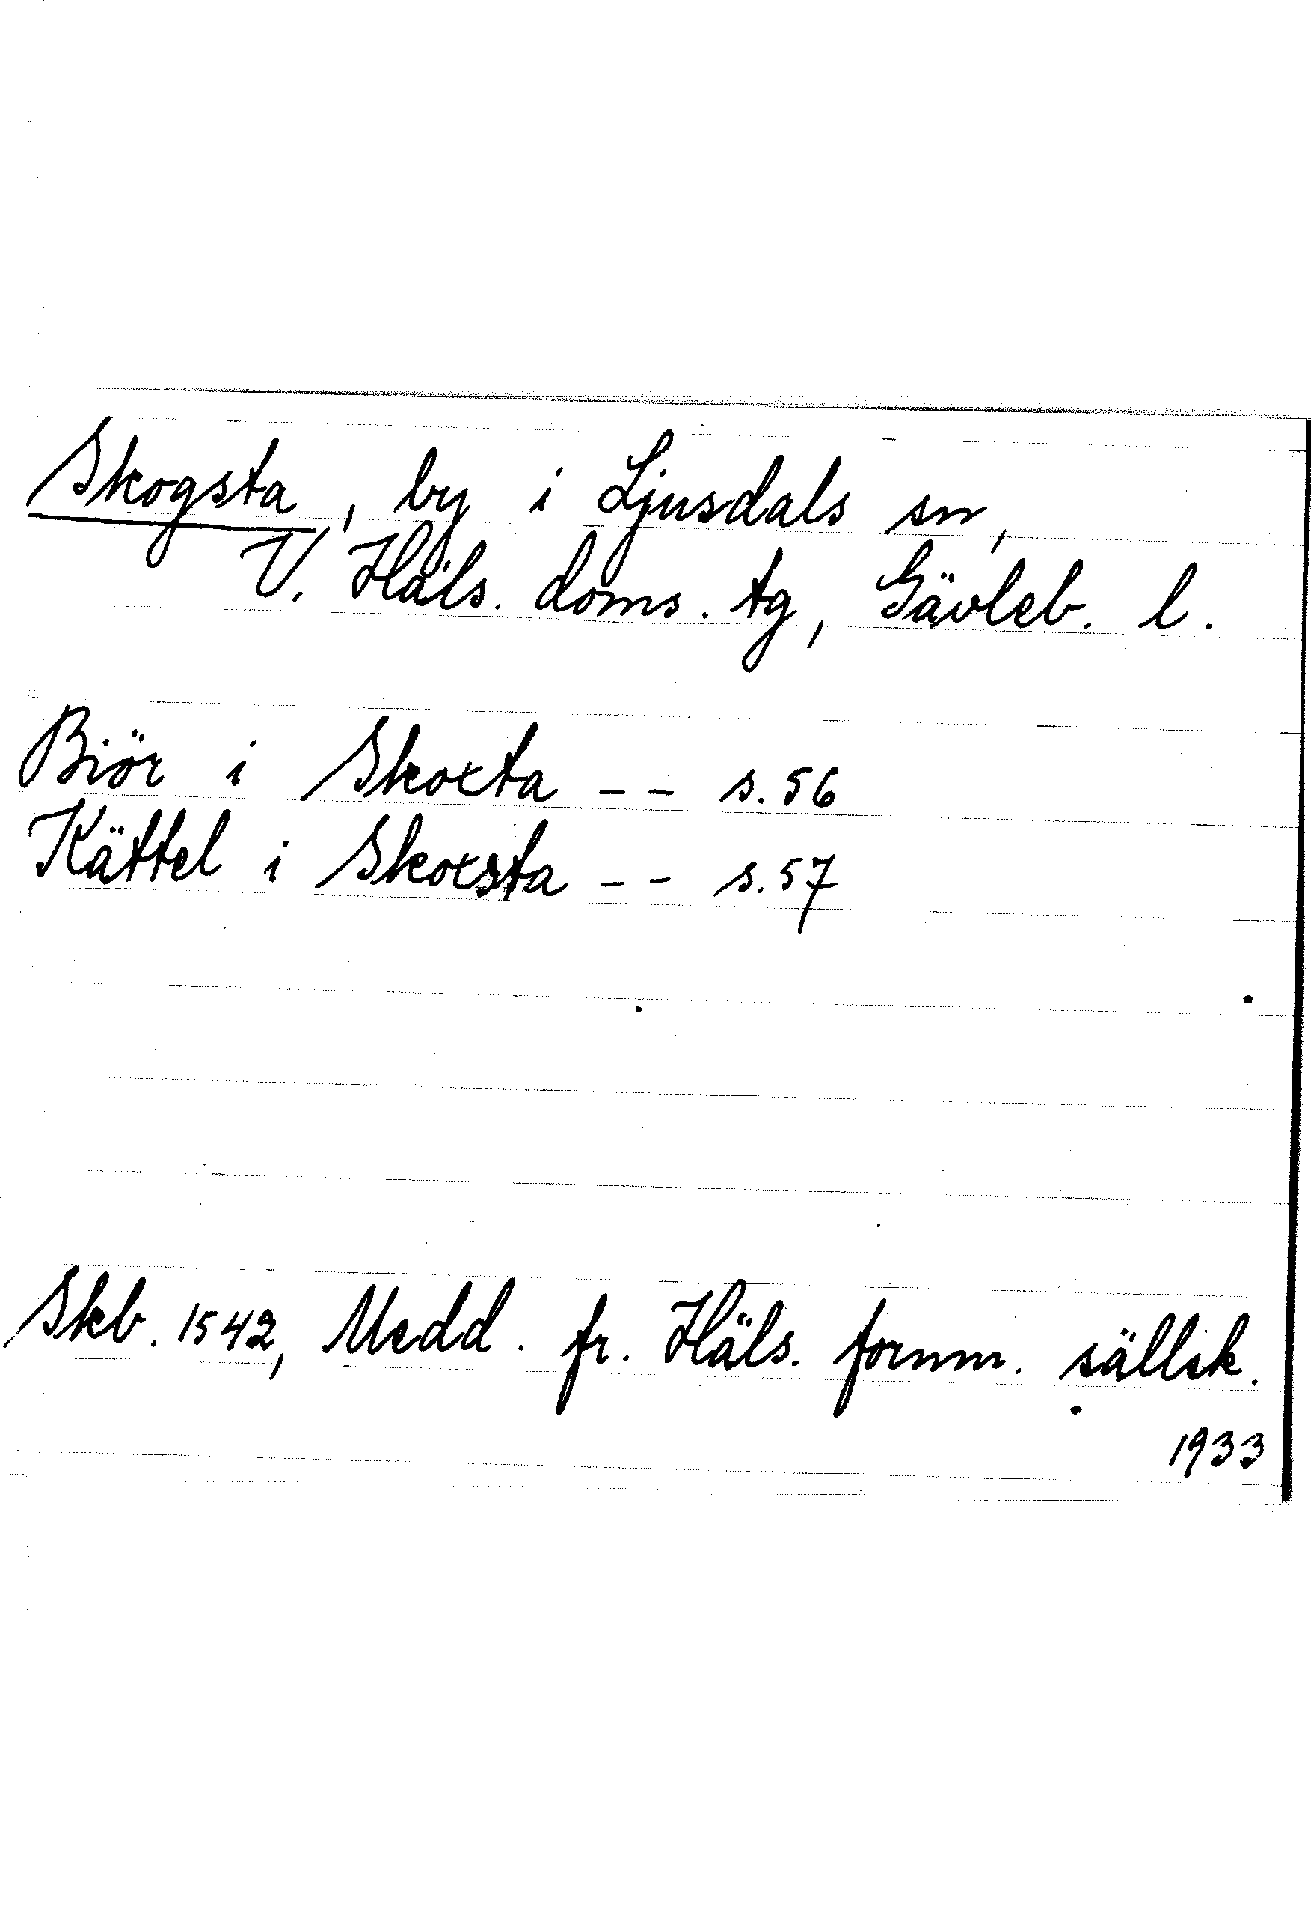 Skogsta, by i Ljusdals sn,
V. Häls. doms. tg, Gävleb. l.
Biör i Skoxta -- s. 56
Kättel i Skoxsta -- s. 57
Skb. 1542, Medd. fr. Häls. fornm. sällsk.
1933